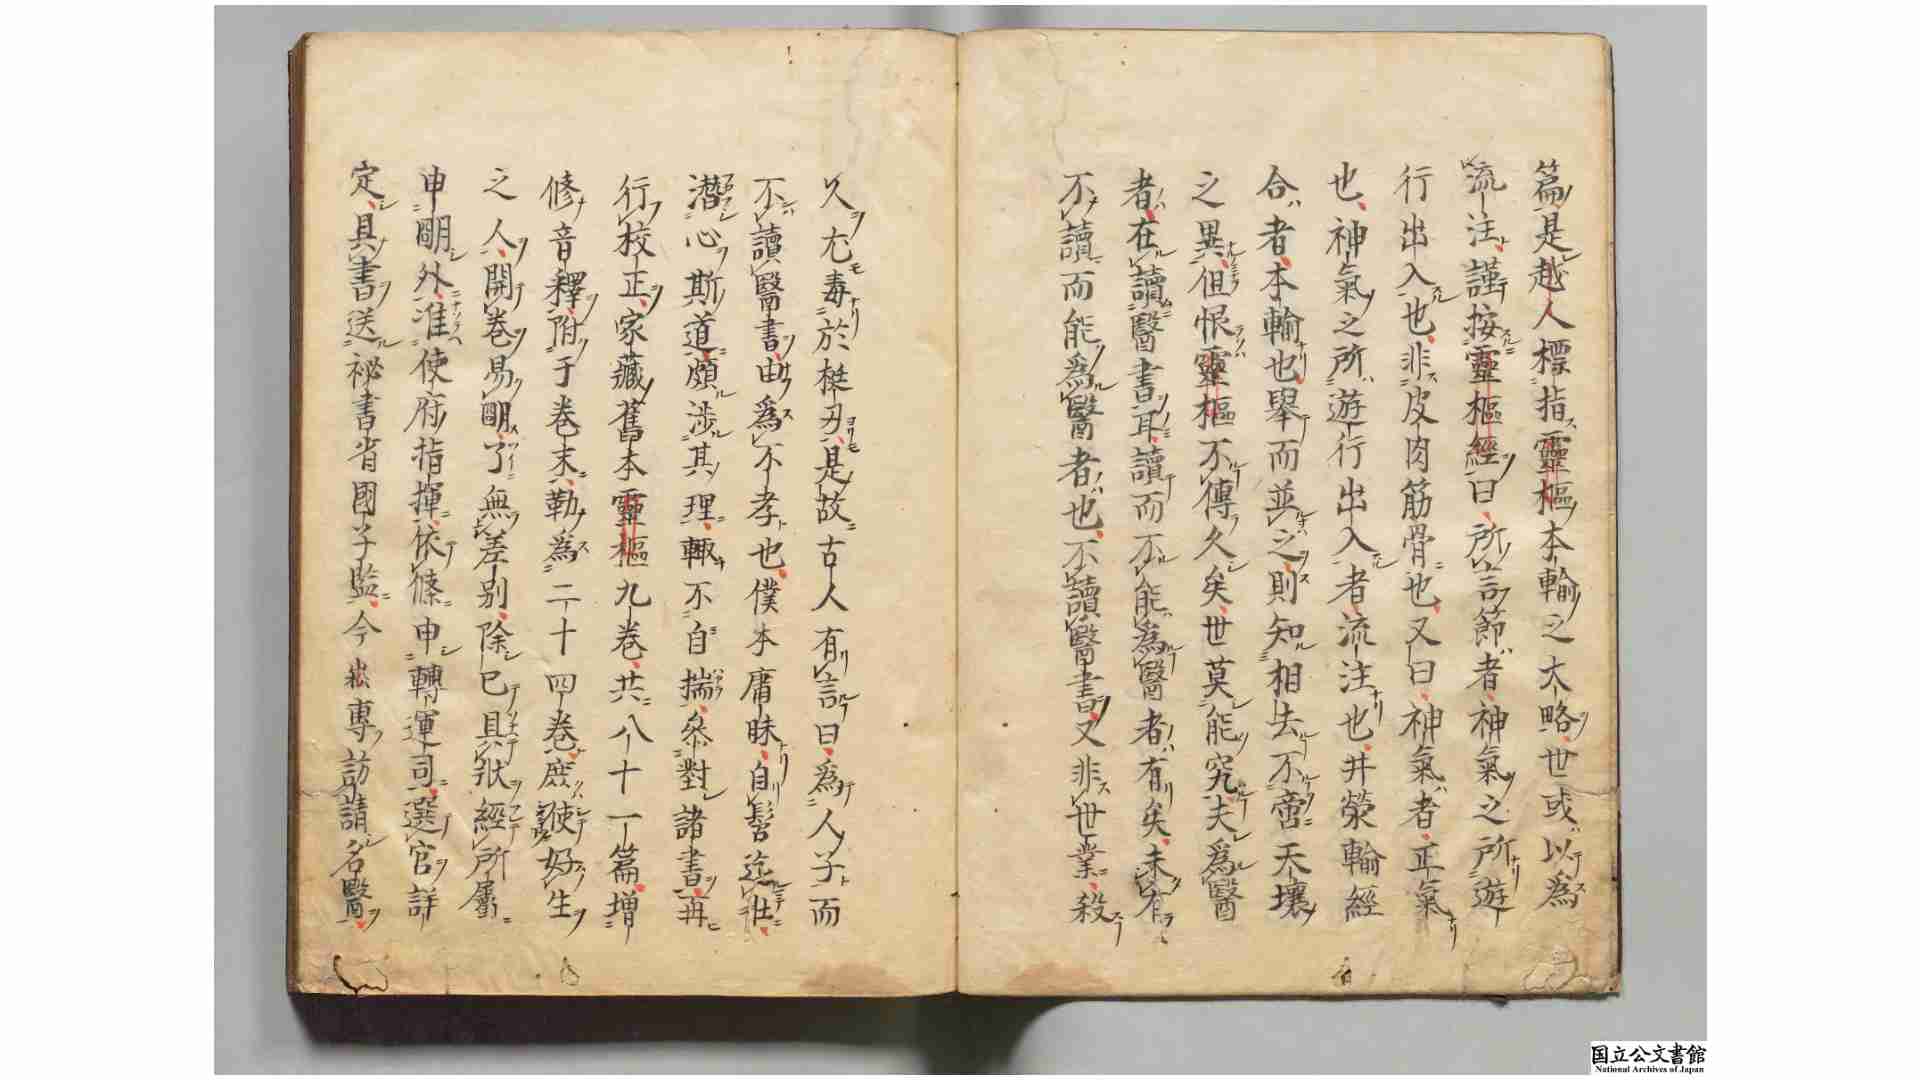 篇是越人標指靈樞本輸之大略世或以為
流注謹按靈樞經曰所言節者神氣之所遊
行出入也非皮肉筋骨也又曰神氣者正氣
也神氣之所遊行出入者流注也井滎輸經
合者本輸也舉而並之則知相去不啻天壤
之異但恨靈樞不傳久矣世莫能究夫為醫
者在讀醫書耳讀而不能為醫者有矣未有
不讀而能為醫者也不讀醫書又非世業殺
人尤毒於梃刃是故古人有言曰為人子而
不讀醫書由為不孝也僕本庸昧自髫迄壯
潛心斯道頗涉其理輙不自揣叅對諸書再
行校正家藏舊本靈樞九卷共八十一篇增
修音釋附于卷末勒為二十四卷庶使好生
之人開卷易明了無差别除已具狀經所屬
申明外准使府指揮依條申轉運司選官詳
定具書送祕書省國子監今崧專訪請名醫
国立公文書館
National Archives of Japan